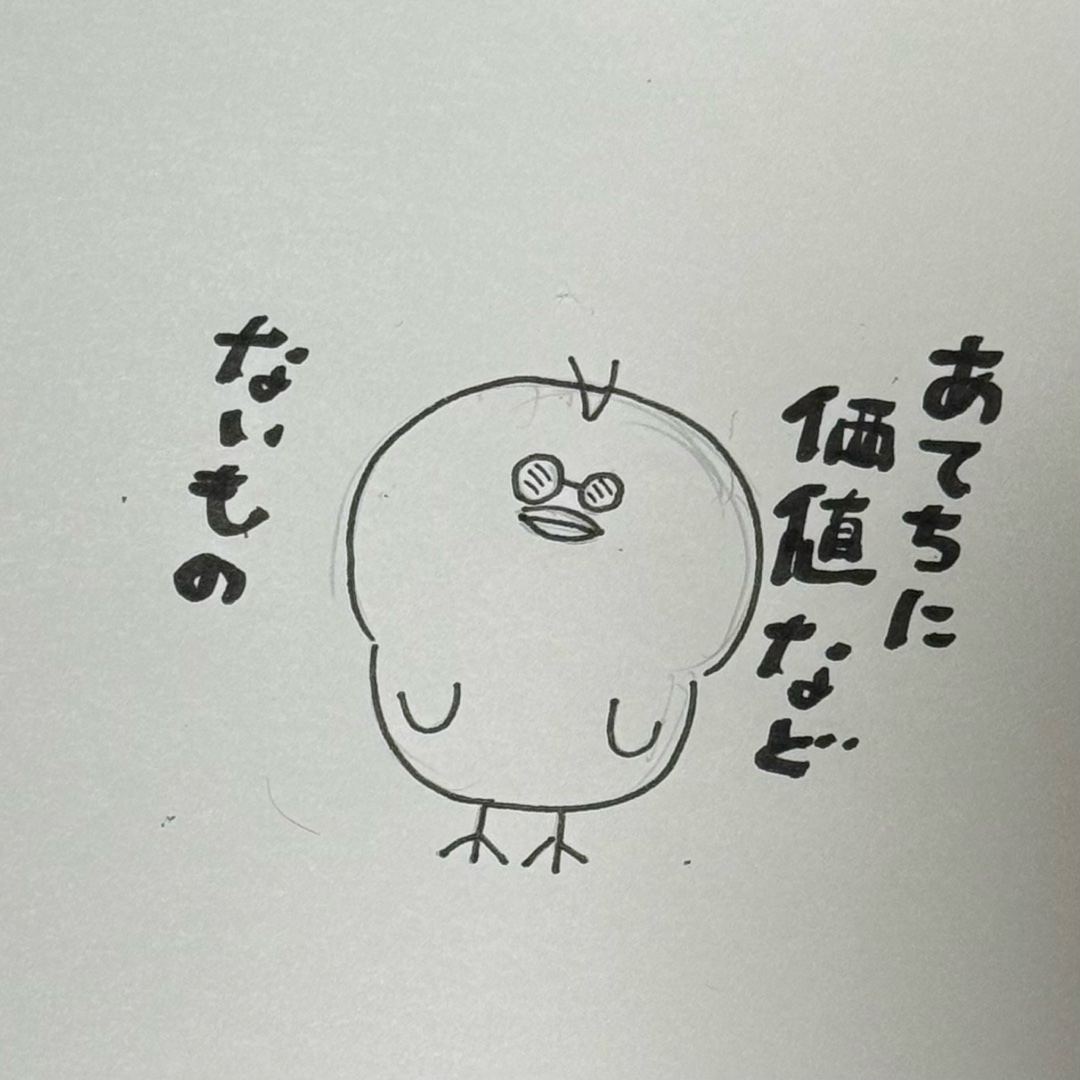 あてちに
価値など
ないもの